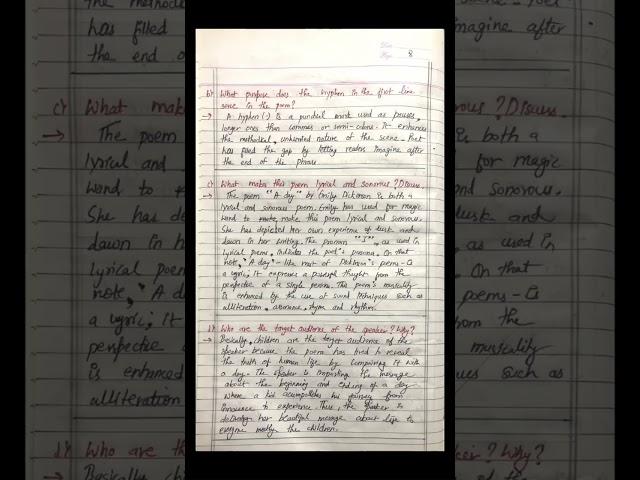 8
b) What purpose does the hyphen in the first line
serve in the poem?
→ A hyphen (-) is a puncual mark used as pauses,
longer ones than commas or semi-colons. It enhances
the methodical, unhurried nature of the scene. Poet
has filled the gap by letting readers imagine after
the end of the phrase
c) What makes this poem lyrical and sonorous? Discuss.
→ The poem "A day" by Emily Dickinson is both a
lyrical and sonorous poem. Emily has used for magic
word to make this poem lyrical and sonorous.
She has depicted her own experience of dusk and
dawn in her writing. The pronoun "I", as used in
lyrical poems, indicates the poet's persona. On that
note, "A day" - like most of Dickinson's poems - is
a lyric; it expresses a powerful thought from the
perspective of a single person. This poem's musicality
is enhanced by the use of sound techniques such as
alliteration, assonance, rhyme and rhythm.
d) Who are the target audience of the speaker? Why?
→ Basically, children are the target audience of the
speaker because the poem has tried to reveal
the truth of human life by comparing it with
a day. The speaker is imparting the message
about the beginning and ending of a day
where a kid his journey from
innocence to experience. Thus, the speaker is
delivering her beautiful message about life to
mostly the children.